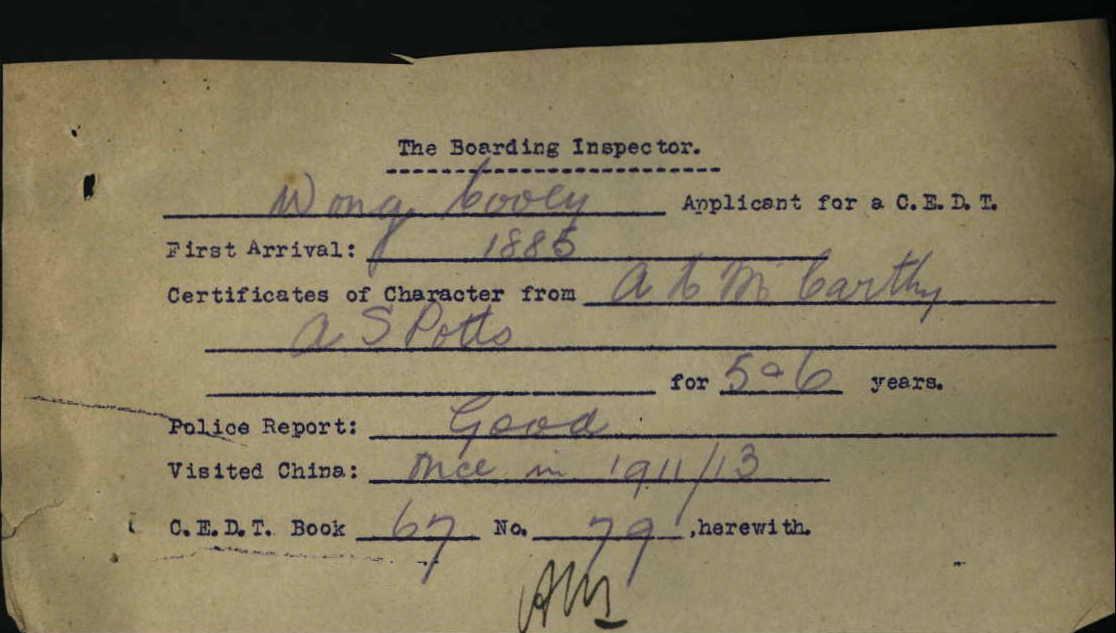 The Boarding Inspector.
Wong Cooey Applicant for a C.E.D.T.
First Arrival: 1885
Certificates of Character from A McCarthy
A S Potts
for 5 a 6 years.
Police Report: Good
Visited China: Once in 1911/13
C.E.D.T. Book 67 No. 79 ,herewith.